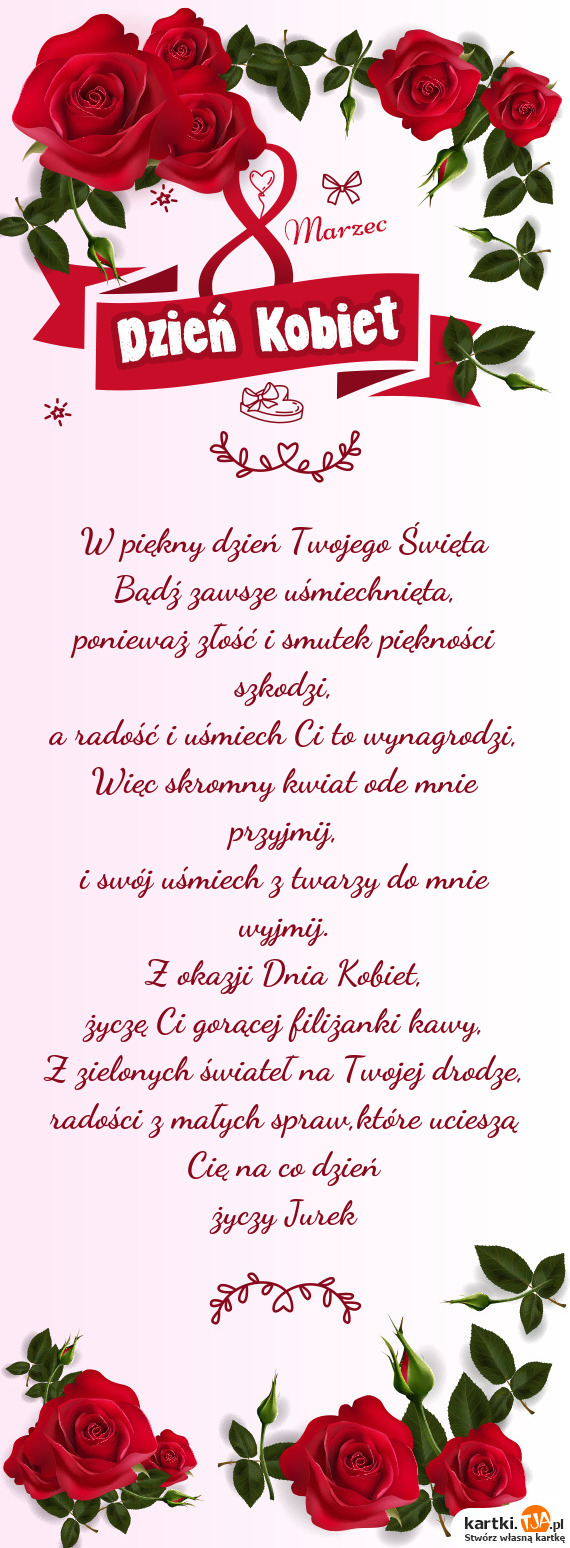 8
Marzec
Dzień Kobiet
W piękny dzień Twojego Święta
Bądź zawsze uśmiechnięta,
ponieważ złość i smutek piękności
szkodzi,
a radość i uśmiech Ci to wynagrodzi,
Więc skromny kwiat ode mnie
przyjmij,
i swój uśmiech z twarzy do mnie
wyjmij.
Z okazji Dnia Kobiet,
życzę Ci gorącej filiżanki kawy,
Z zielonych świateł na Twojej drodze,
radości z małych spraw,które ucieszą
Cię na co dzień
życzy Jurek
kartki.TJA.pl
Stwórz własną kartkę